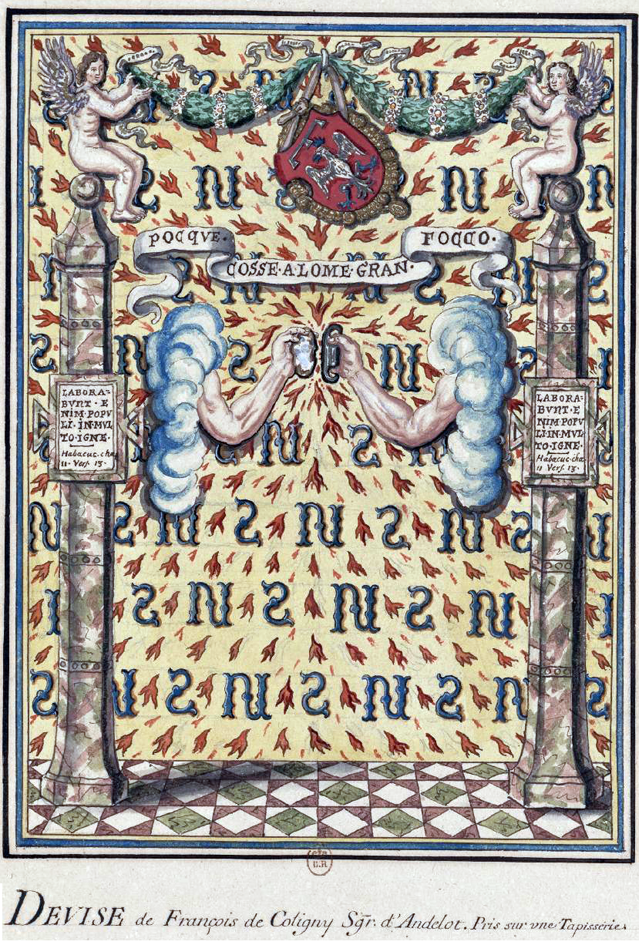 POCQVE·
FOCCO·
COSSE·A·LOME·GRAN·
LABORA-
BVNT·E
NIM·POPV
LI·IN·MVL
TO·IGNE·
Habacuc·cha
II·Vers·13·
LABORA-
BVNT·E
NIM·POPV
LI·IN·MVL
TO·IGNE·
Habacuc·cha
II Vers·13·
DEVISE de François de Coligny Sgr. d'Andelot. Pris sur vne Tapisserie.